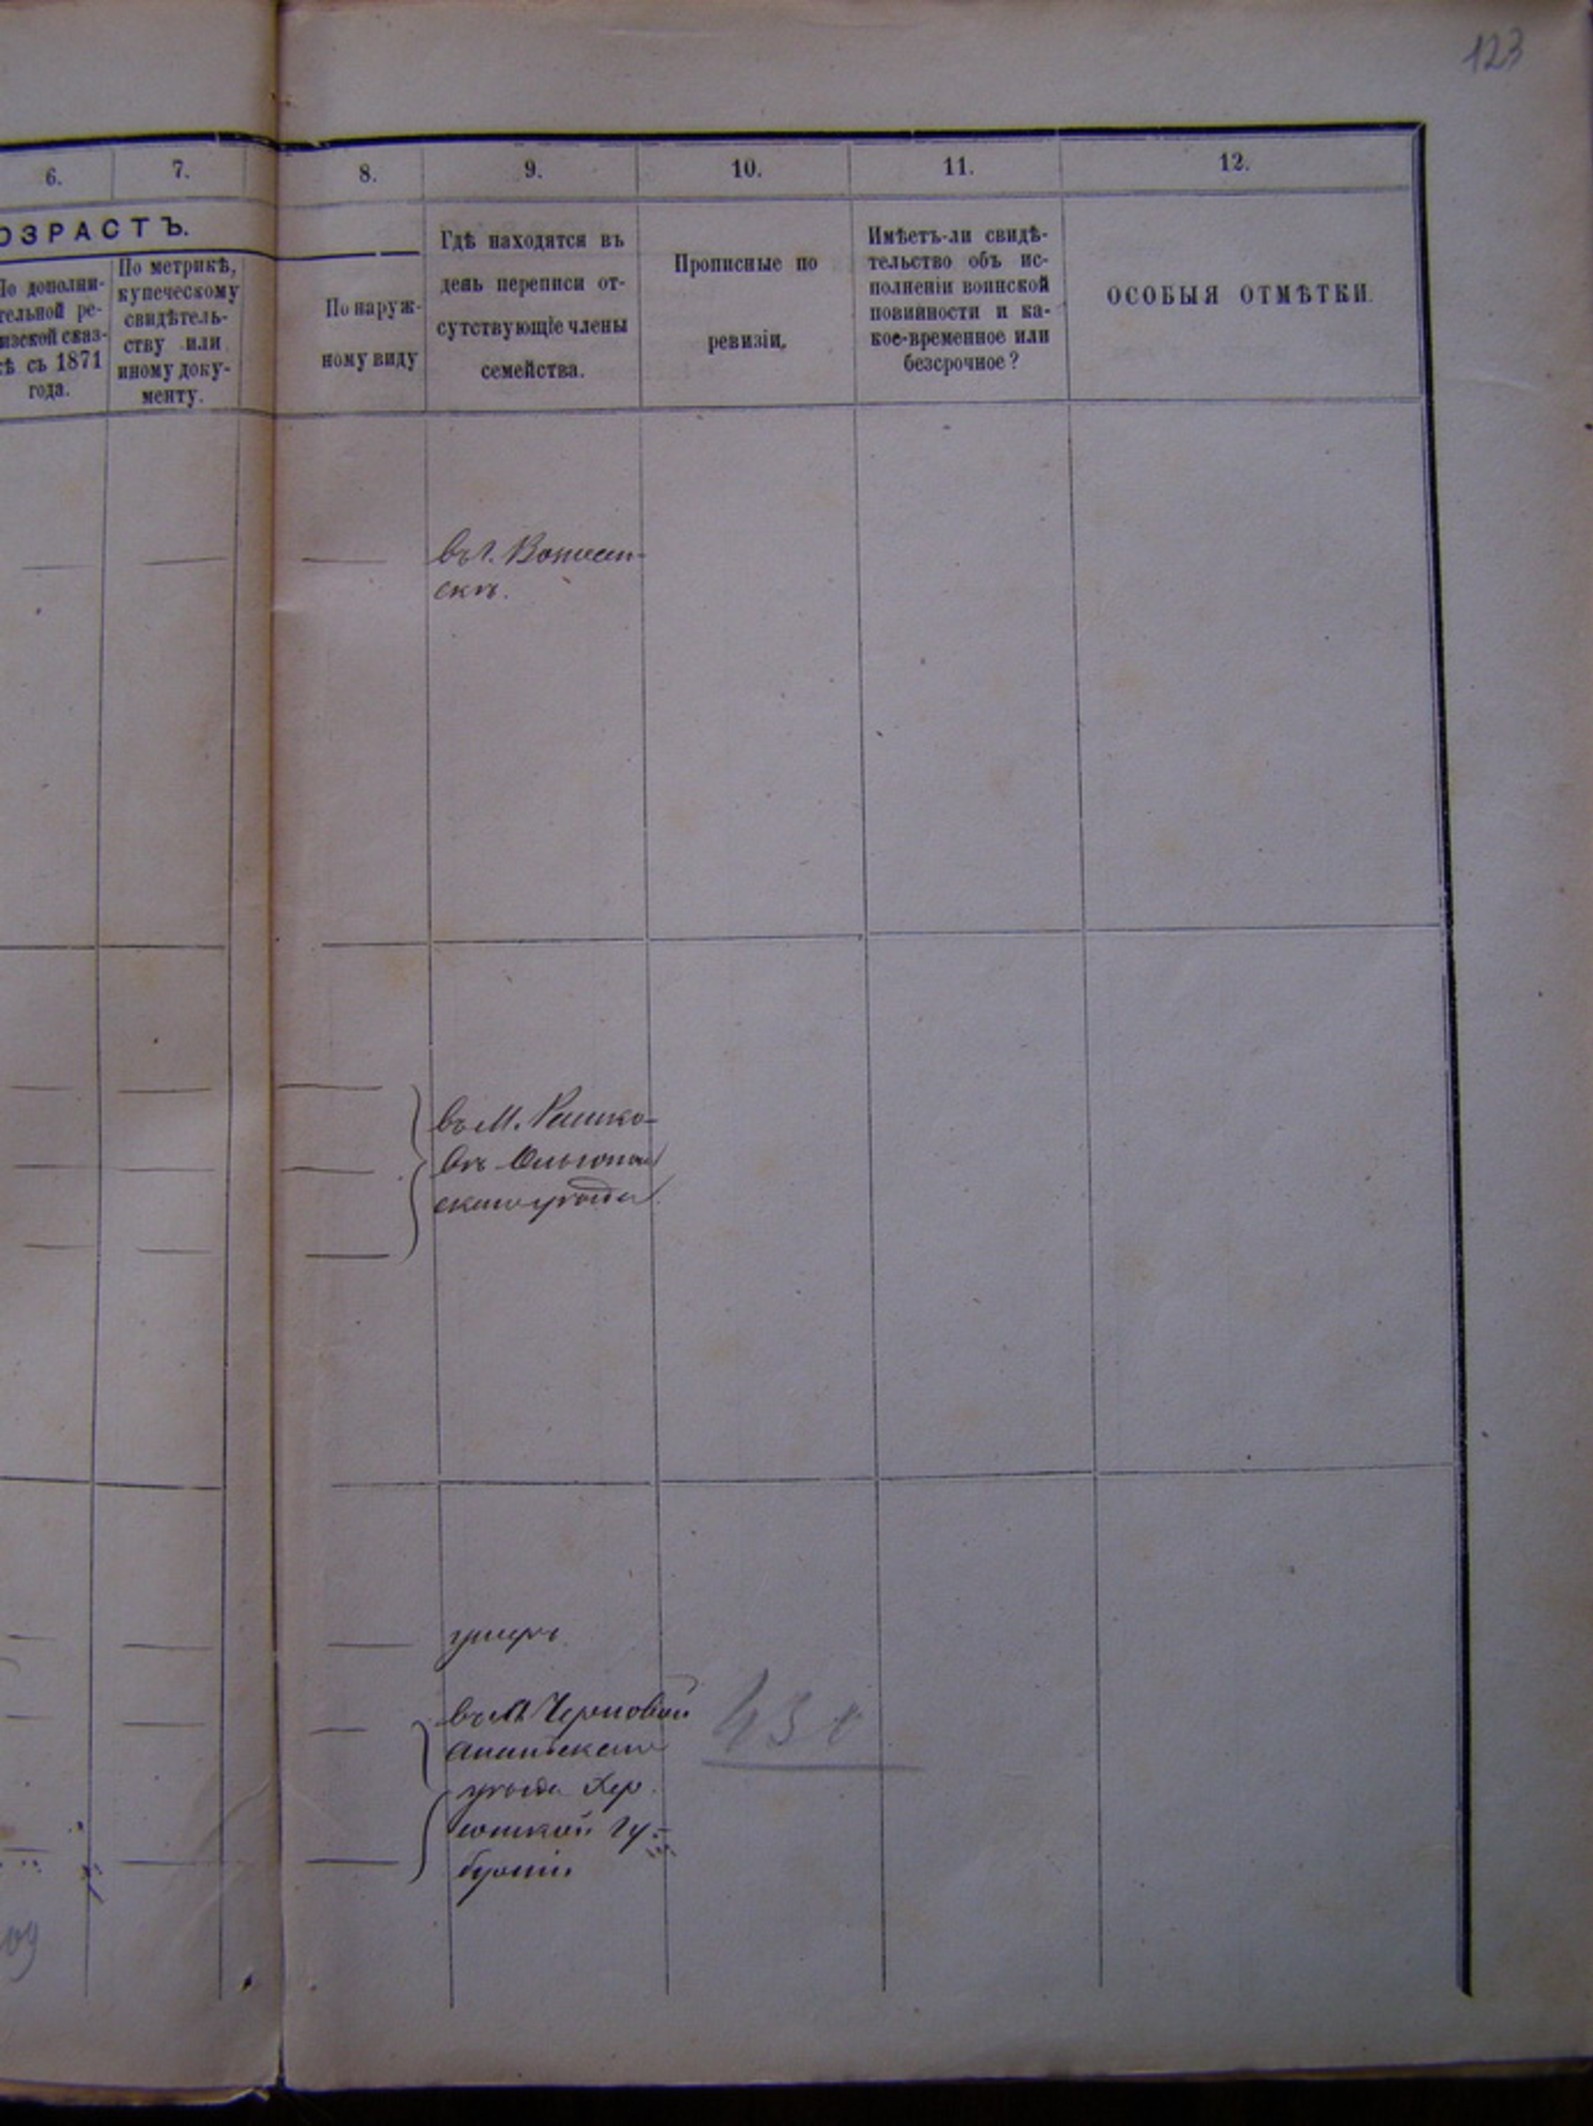 123
6. 7. 8. 9. 10. 11. 12.
ОЗРАСТЪ.
По дополни-
тельной ре-
визской сказ-
кѣ съ 1871
года.
По метрикѣ,
купеческому
свидѣтель-
ству или
иному доку-
менту.
По наруж-
ному виду
Гдѣ находятся въ
день переписи от-
сутствующіе члены
семейства.
Прописные по
ревизіи.
Имѣетъ-ли свидѣ-
тельство объ ис-
полненіи воинской
повинности и ка-
кое-временное или
безсрочное?
ОСОБЫЯ ОТМѢТКИ.
въ г. Вознесен-
скѣ.
въ М. Рашко-
вѣ Ольгополь
скаго уѣзда
умеръ
въ М.
Ананьевскаго
уѣзда Хер
сонской Гу-
берніи
09